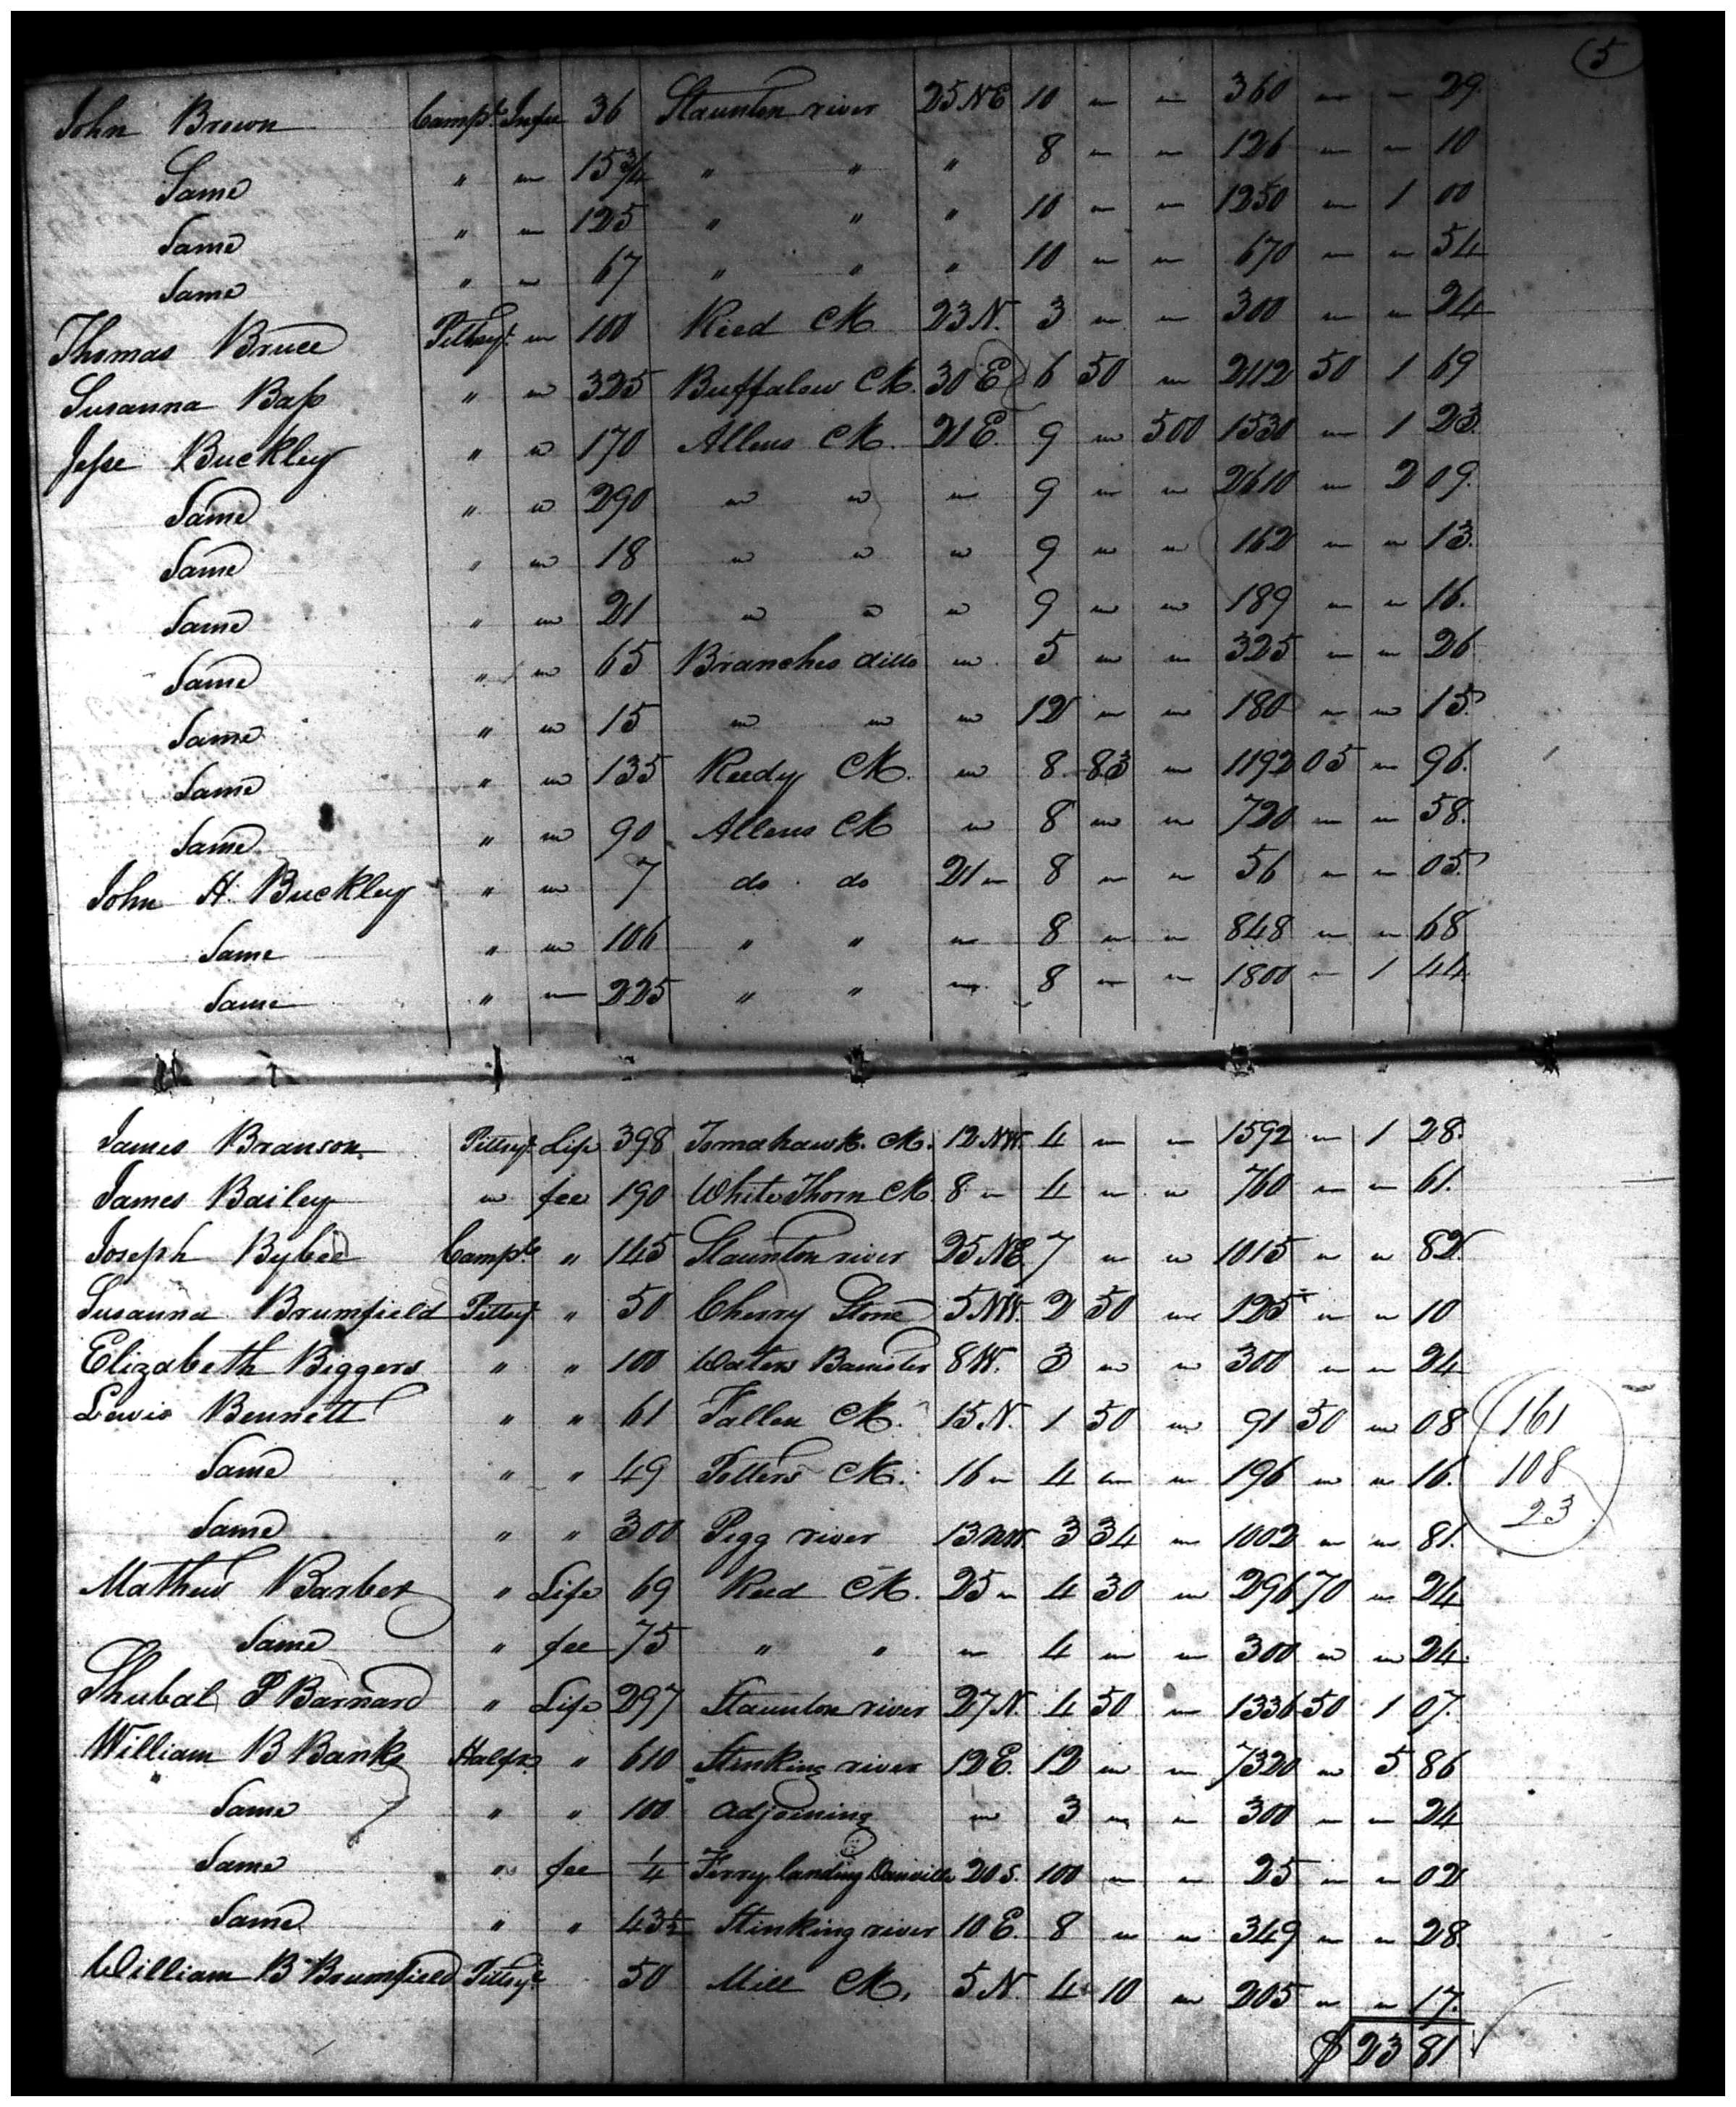 5
John Brown Campl. Infee 36 Staunton river 25 NE 10 " " 360 " " 29
Same " " 15 3/4 " " " 8 " " 126 " " 10
Same " " 125 " " " 10 " " 1250 " 1 00
Same " " 67 " " " 10 " " 670 " " 54
Thomas Bruce Pittsyl. " 100 Reed Ck 23 N. 3 " " 300 " " 24
Susanna Bass " " 325 Buffalow Ck. 30 E 6 50 " 2112 50 1 69
Jesse Buckley " " 170 Allens Ck. 21 E. 9 " 500 1530 " 1 23.
Same " " 290 " " " 9 " " 2610 " 2 09.
Same " " 18 " " " 9 " " 162 " " 13.
Same " " 21 " " " 9 " " 189 " " 16.
Same " " 65 Branches ditto " 5 " " 325 " " 26
Same " " 15 " " " 12 " " 180 " " 15.
Same " " 135 Reedy Ck. " 8 83 " 1192 05 " 96.
Same " " 90 Allens Ck " 8 " " 720 " " 58.
John H. Buckley " " 7 do do 21 " 8 " " 56 " " 05.
Same " " 106 " " " 8 " " 848 " " 68
Same " " 225 " " " 8 " " 1800 " 1 44.
James Branson Pittsyl. Life 398 Tomahawk. Ck. 12 NW. 4 " " 1592 " 1 28.
James Bailey " fee 190 White Thorn Ck 8 " 4 " " 760 " " 61.
Joseph Bybee Campl. " 145 Staunton river 25 NE 7 " " 1015 " " 82.
Susanna Brumfield Pittsyl. " 50 Cherry Stone 5 NW. 2 50 " 125 " " 10
Elizabeth Biggers " " 100 Waters Banister 8 W. 3 " " 300 " " 24
Lewis Bennett " " 61 Fallen Ck. 15 N. 1 50 " 91 50 " 08
Same " " 49 Potters Ck. 16 " 4 " " 196 " " 16.
Same " " 300 Pigg river 13 NW. 3 34 " 1002 " " 81.
161
108
23
Mathew Barber " Life 69 Reed Ck. 25 " 4 30 " 296 70 " 24
Same " fee 75 " " " 4 " " 300 " " 24.
Shubal P Barnard " Life 297 Staunton river 27 N. 4 50 " 1336 50 1 07.
William B Banks Halfx. " 610 Stinking river 12 E. 12 " " 7320 " 5 86
Same " " 100 adjoining " 3 " " 300 " " 24
Same " fee 1/4 Ferry landing Danville 20 S. 100 " " 25 " " 02
Same " " 43 1/2 Stinking river 10 E. 8 " " 349 " " 28.
William B Brumfield Pittsyl. 50 Mill Ck. 5 N. 4 10 " 205 " " 17.
$ 23 81